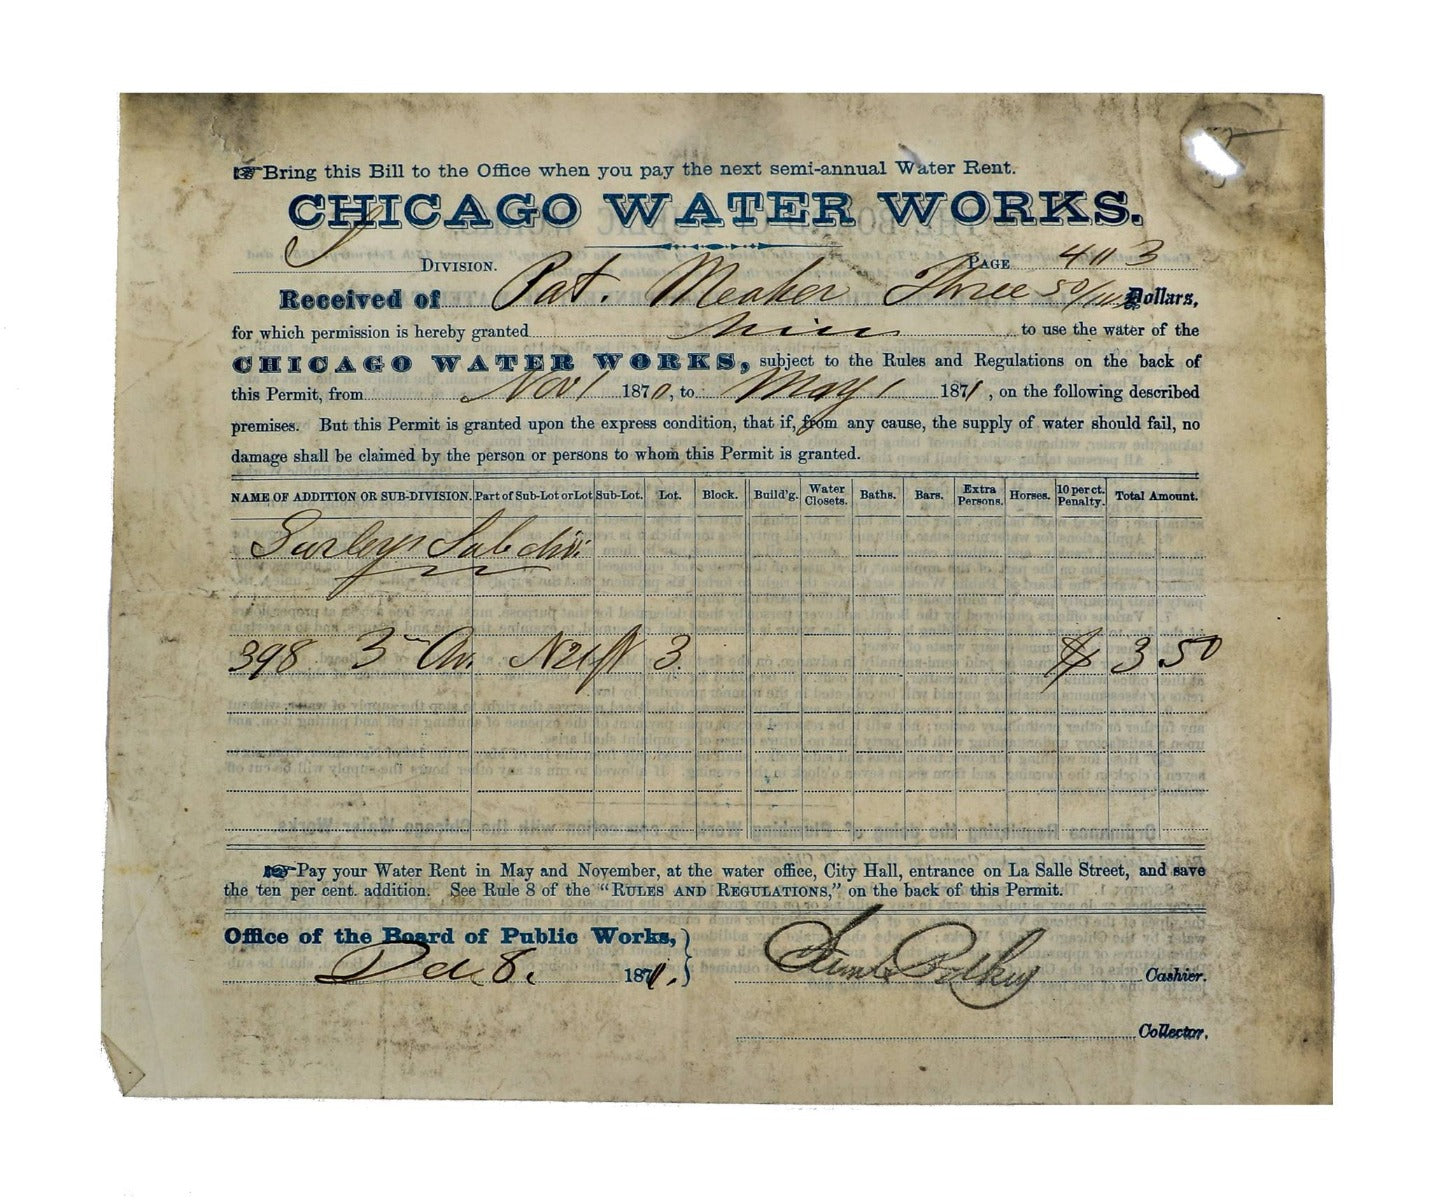 Bring this Bill to the Office when you pay the next semi-annual Water Rent.
CHICAGO WATER WORKS.
S DIVISION. PAGE 403
Received of Pat. Meaher Three 50/100 Dollars,
for which permission is hereby granted him to use the water of the
CHICAGO WATER WORKS, subject to the Rules and Regulations on the back of
this Permit, from Nov 1 1870, to May 1 1871, on the following described
premises. But this Permit is granted upon the express condition, that if, from any cause, the supply of water should fail, no
damage shall be claimed by the person or persons to whom this Permit is granted.
NAME OF ADDITION OR SUB-DIVISION. Part of Sub-Lot or Lot Sub-Lot. Lot. Block. Build'g. Water Closets. Baths. Bars. Extra Persons. Horses. 10 per ct. Penalty. Total Amount.
Subdiv
398 3 Av. 3 $ 3.50
Pay your Water Rent in May and November, at the water office, City Hall, entrance on La Salle Street, and save
the ten per cent. addition. See Rule 8 of the "RULES AND REGULATIONS," on the back of this Permit.
Office of the Board of Public Works,
8. 187 Cashier.
Collector.